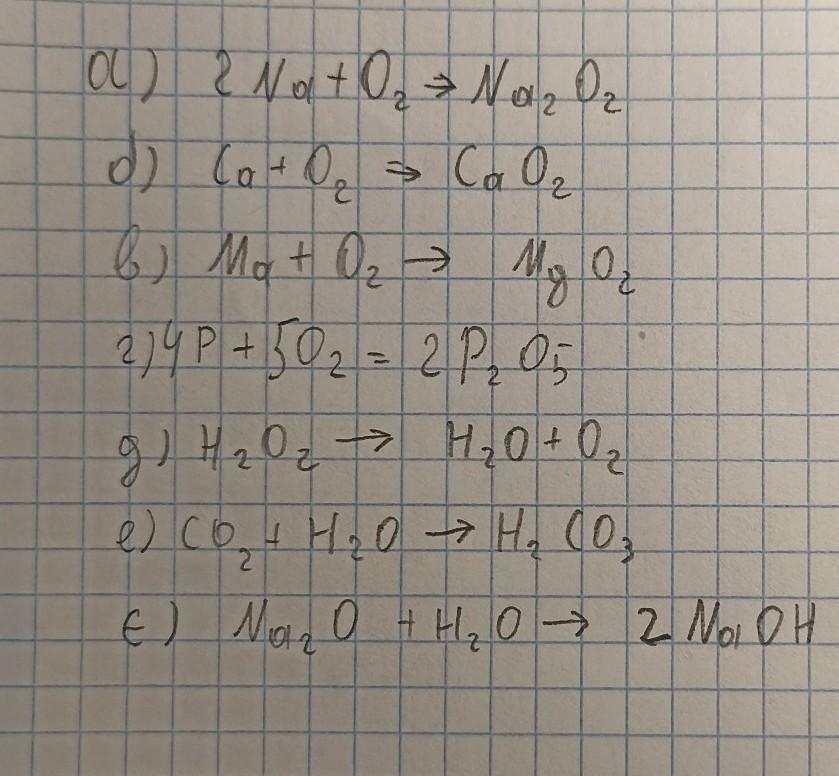 а) 2Na + O₂ → Na₂O₂
б) Ca + O₂ → CaO₂
в) Mg + O₂ → MgO₂
г) 4P + 5O₂ = 2P₂O₅
д) H₂O₂ → H₂O + O₂
е) CO₂ + H₂O → H₂CO₃
є) Na₂O + H₂O → 2NaOH